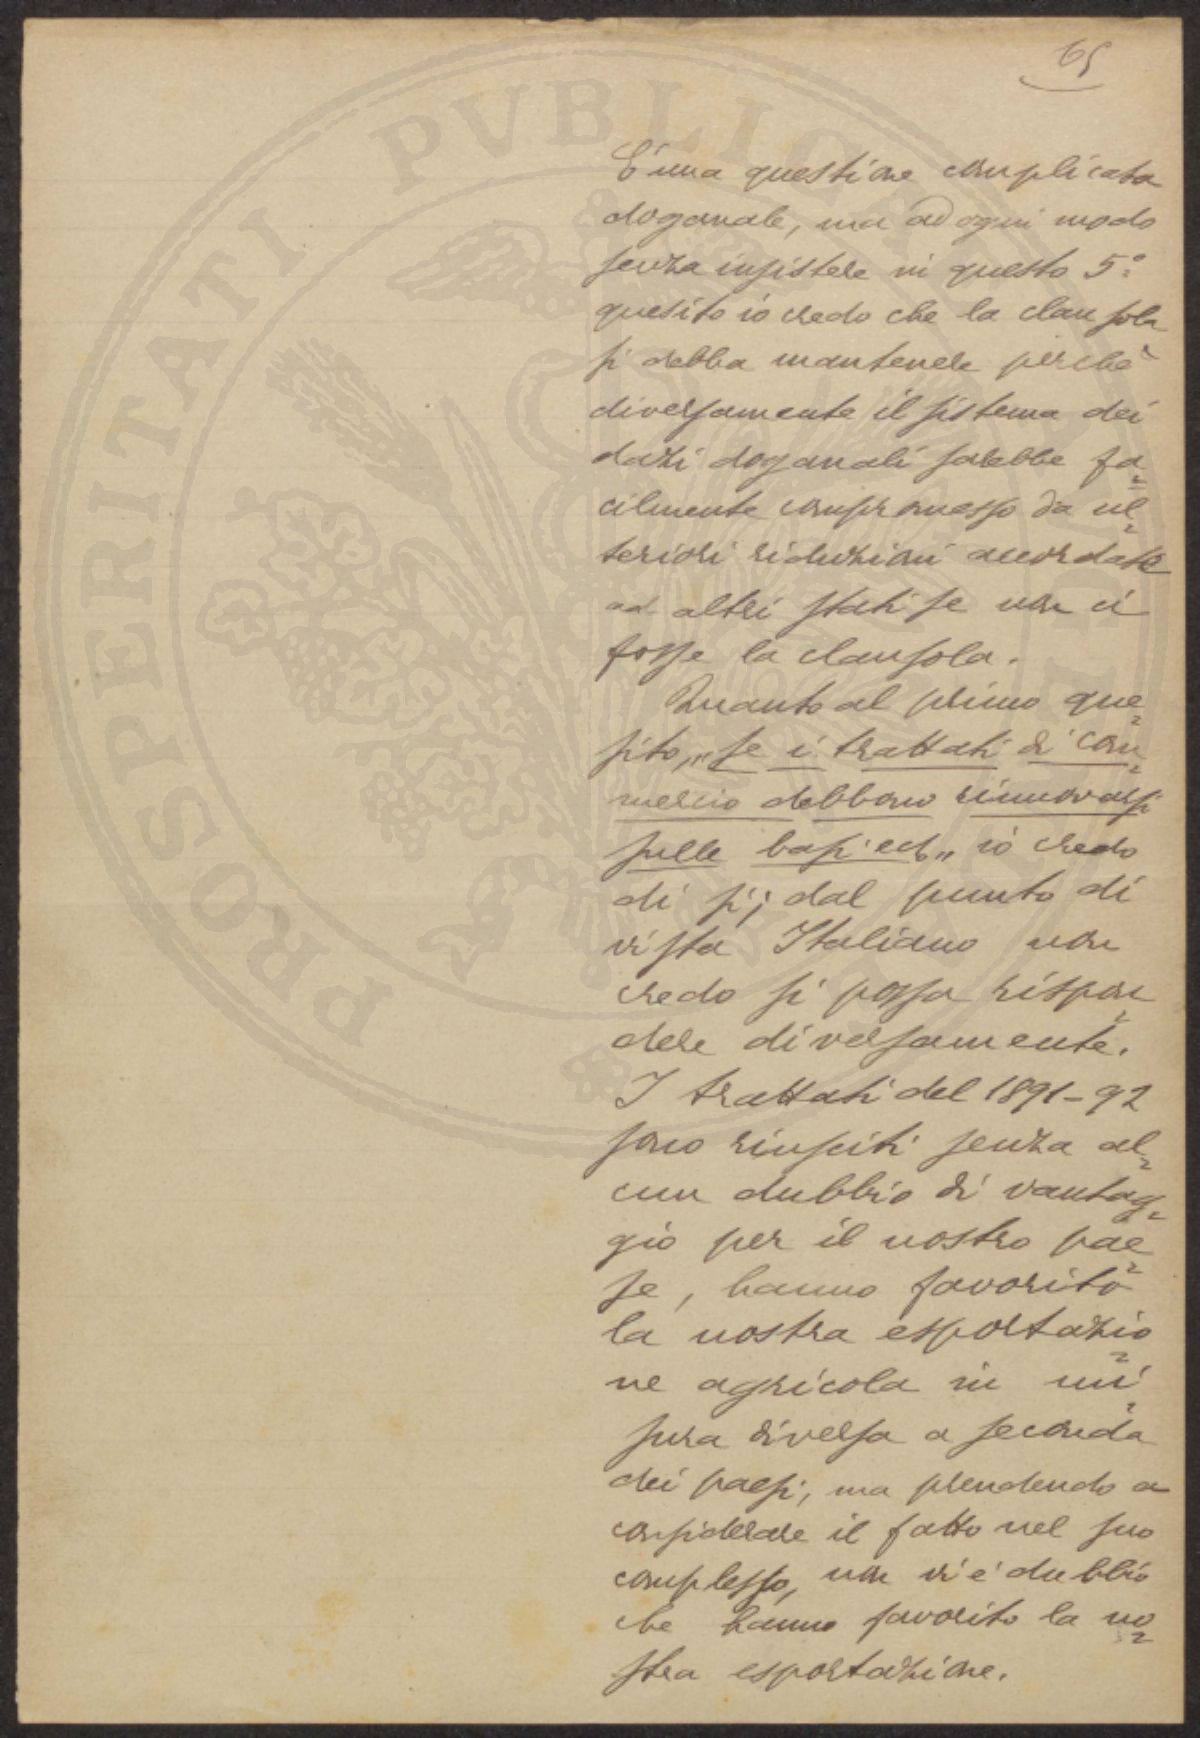 65
È una questione complicata
doganale, ma ad ogni modo
senza insistere in questo 5º
quesito io credo che la clausola
si debba mantenere perchè
diversamente il sistema dei
dazi doganali sarebbe fa=
cilmente compromesso da ul=
teriori riduzioni accordate
ad altri stati se non ci
fosse la clausola.
Quanto al primo que=
sito, "se i trattati di com=
mercio debbono rinnovarsi
sulle basi ect" io credo
di si; dal punto di
vista Italiano non
credo si possa rispon=
dere diversamente.
I trattati del 1891-92
sono riusciti senza al=
cun dubbio di vantag=
gio per il nostro pae=
se, hanno favorito
la nostra esportazio=
ne agricola in mi=
sura diversa a seconda
dei paesi, ma prendendo a
considerare il fatto nel suo
complesso, non vi è dubbio
che hanno favorito la no=
stra esportazione.
PROSPERITATI PVBLICAE